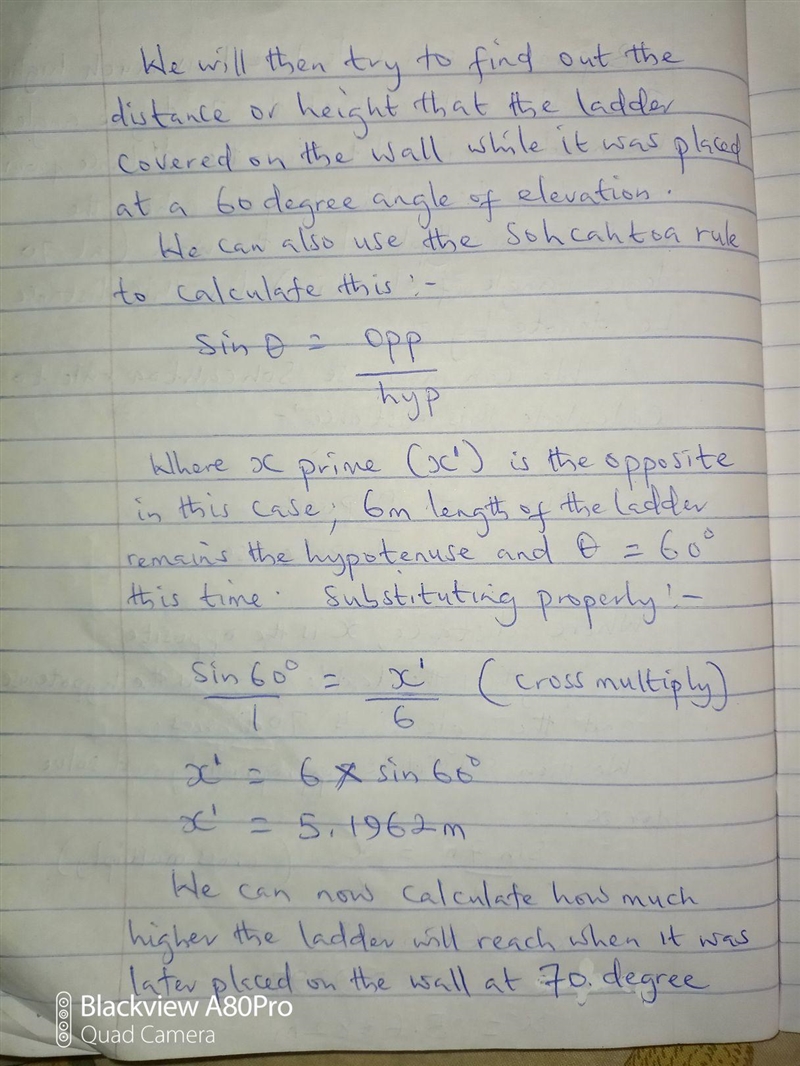 We will then try to find out the
distance or height that the ladder
covered on the wall while it was placed
at a 60 degree angle of elevation.
We can also use the Sohcahtoa rule
to calculate this :-
Sin θ = opp
hyp
Where x prime (x') is the opposite
in this case; 6m length of the ladder
remains the hypotenuse and θ = 60°
this time. Substituting properly :-
Sin 60° = x' (cross multiply)
1 6
x' = 6 × sin 60°
x' = 5.1962m
We can now calculate how much
higher the ladder will reach when it was
later placed on the wall at 70. degree
Blackview A80Pro
Quad Camera